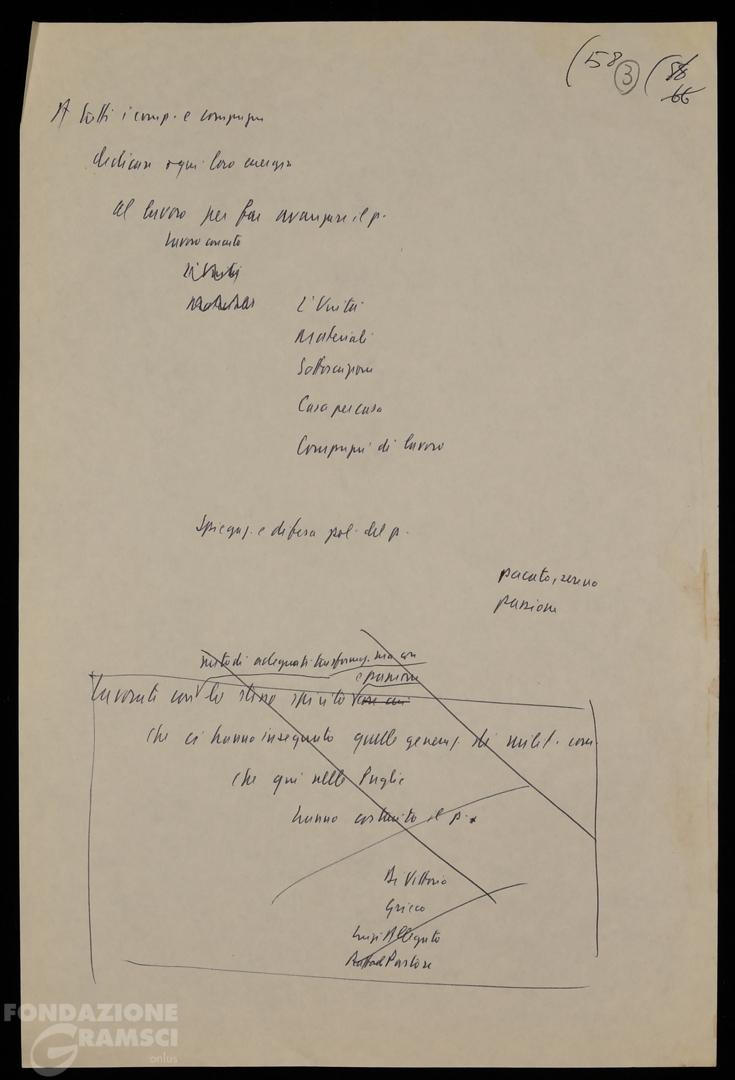 (58 3 (58
66
A tutti i comp. e compagni
dedicare ogni loro energia
al lavoro per far avanzare il p.
lavoro concreto
L'Unità
L'Unità
Materiali
Sottoscrizione
Casa per casa
Compagni di lavoro
Spiegaz. e difesa pol. del p.
pacato, sereno
passione
metodi adeguati trasformaz. ma con
e passione
lavorate con lo stesso spirito
che ci hanno insegnato quelle generaz. di milit. com.
che qui nelle Puglie
hanno costruito il p.
Di Vittorio
Grieco
Luigi Allegato
Pastore
FONDAZIONE
GRAMSCI
onlus